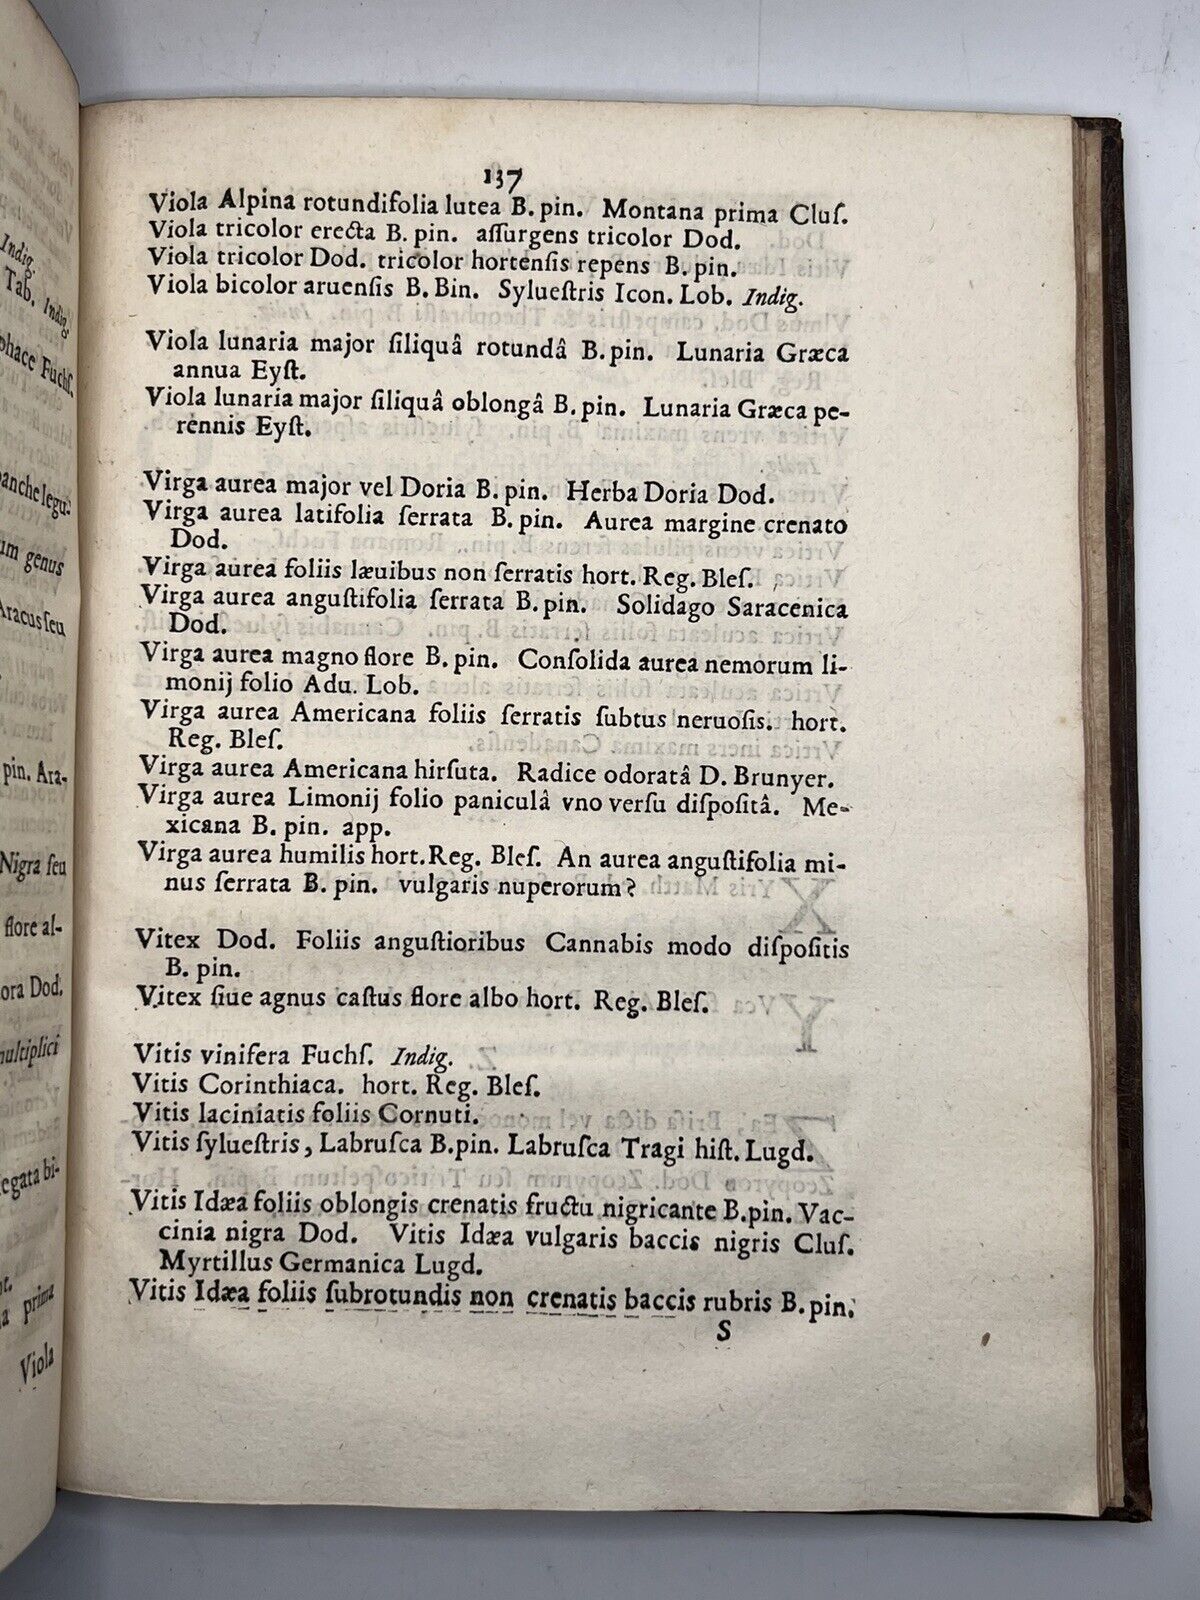 137
Viola Alpina rotundifolia lutea B. pin. Montana prima Cluſ.
Viola tricolor erecta B. pin. aſſurgens tricolor Dod.
Viola tricolor Dod. tricolor hortenſis repens B. pin.
Viola bicolor aruenſis B. Bin. Sylueſtris Icon. Lob. Indig.
Viola lunaria major ſiliquâ rotundâ B. pin. Lunaria Græca
annua Eyſt.
Viola lunaria major ſiliquâ oblongâ B. pin. Lunaria Græca pe-
rennis Eyſt.
Virga aurea major vel Doria B. pin. Herba Doria Dod.
Virga aurea latifolia ſerrata B. pin. Aurea margine crenato
Dod.
Virga aurea foliis læuibus non ſerratis hort. Reg. Bleſ.
Virga aurea anguſtifolia ſerrata B. pin. Solidago Saracenica
Dod.
Virga aurea magno flore B. pin. Conſolida aurea nemorum li-
monij folio Adu. Lob.
Virga aurea Americana foliis ſerratis ſubtus neruoſis. hort.
Reg. Bleſ.
Virga aurea Americana hirſuta. Radice odoratâ D. Brunyer.
Virga aurea Limonij folio paniculâ vno verſu diſpoſitâ. Me-
xicana B. pin. app.
Virga aurea humilis hort. Reg. Bleſ. An aurea anguſtifolia mi-
nus ſerrata B. pin. vulgaris nuperorum?
Vitex Dod. Foliis anguſtioribus Cannabis modo diſpoſitis
B. pin.
Vitex ſiue agnus caſtus flore albo hort. Reg. Bleſ.
Vitis vinifera Fuchſ. Indig.
Vitis Corinthiaca. hort. Reg. Bleſ.
Vitis laciniatis foliis Cornuti.
Vitis ſylueſtris, Labruſca B. pin. Labruſca Tragi hiſt. Lugd.
Vitis Idæa foliis oblongis crenatis fructu nigricante B. pin. Vac-
cinia nigra Dod. Vitis Idæa vulgaris baccis nigris Cluſ.
Myrtillus Germanica Lugd.
Vitis Idæa foliis ſubrotundis non crenatis baccis rubris B. pin.
S
Indig.
Tab. Indig.
Fuchſ.
genus
Aracus ſeu
pin. Ara-
Nigra ſeu
flore al-
Dod.
prima
Viola